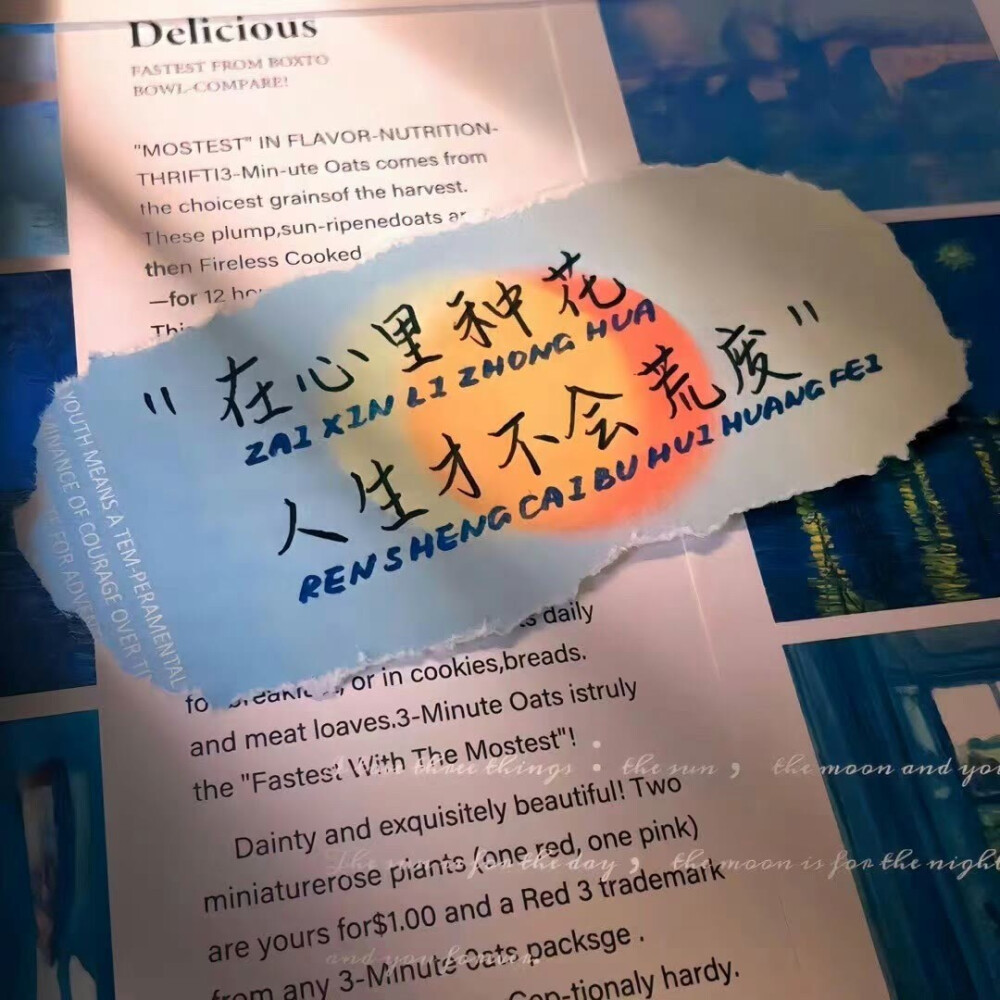 Delicious
FASTEST FROM BOXTO
BOWL-COMPARE!
"MOSTEST" IN FLAVOR-NUTRITION-
THRIFTI3-Min-ute Oats comes from
the choicest grainsof the harvest.
These plump,sun-ripenedoats
then Fireless Cooked
—for 12
"在心里种花
ZAI XIN LI ZHONG HUA
人生才不会荒废"
REN SHENG CAI BU HUI HUANG FEI
YOUTH MEANS A TEM-PERAMENTAL
OF COURAGE OVER
FOR
daily
or in cookies,breads.
and meat loaves.3-Minute Oats istruly
the "Fastest With The Mostest"!
three things : the sun , the moon and you
Dainty and exquisitely beautiful! Two
miniaturerose plants (one red, one pink)
The sun is for the day , the moon is for the night
are yours for$1.00 and a Red 3 trademark
from any 3-Minute Oats packsge .
and you forever.
tionaly hardy.